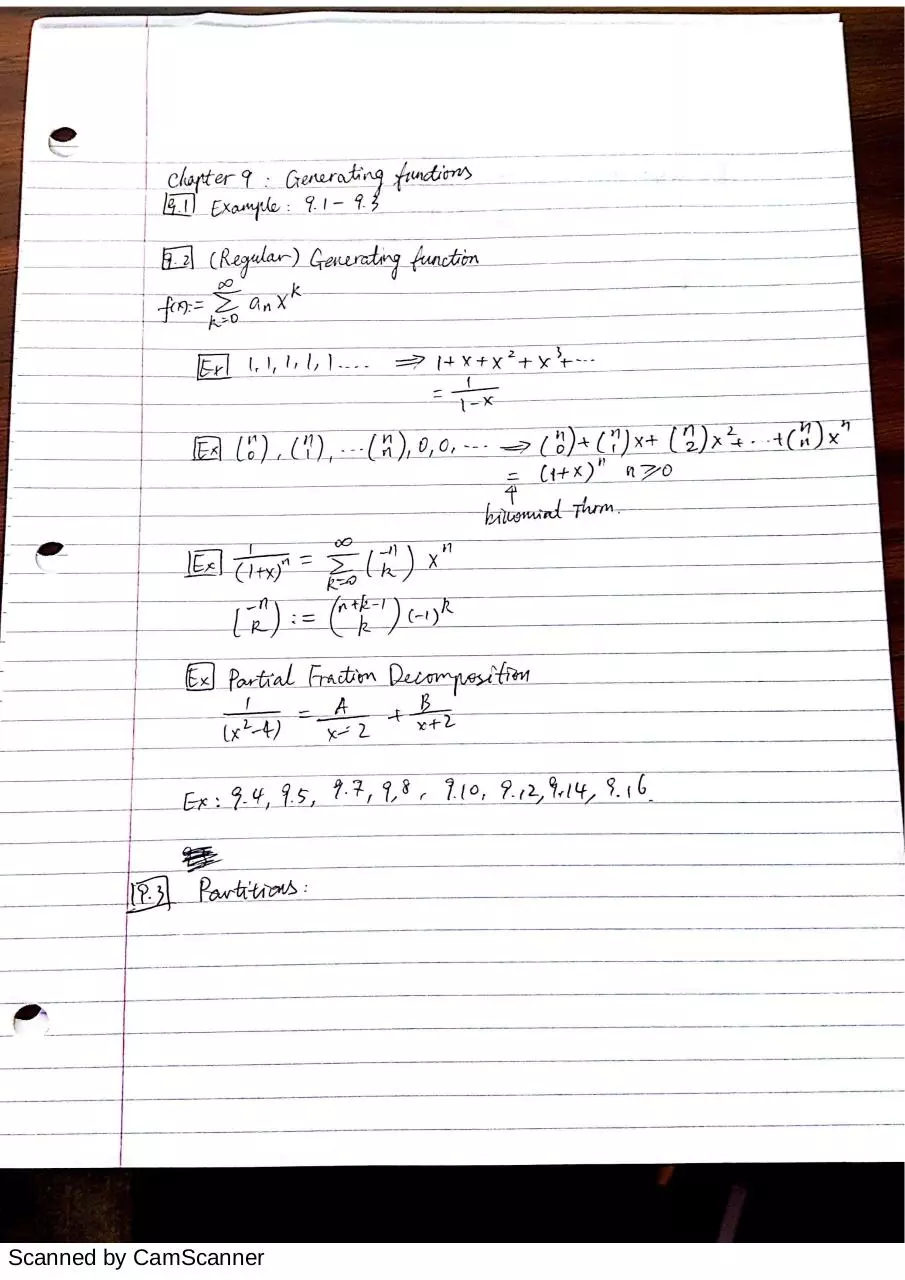 Chapter 9 : Generating functions
9.1 Example : 9.1 - 9.3
9.2 (Regular) Generating function
f(x):= ∑_{k=0}^{∞} a_n x^k
Ex 1, 1, 1, 1, 1 .... ⇒ 1 + x + x^2 + x^3 + ...
= 1/(1-x)
Ex (n 0), (n 1), ... (n n), 0, 0, ... ⇒ (n 0) + (n 1)x + (n 2)x^2 + ... + (n n)x^n
= (1+x)^n n ≥ 0
↑
binomial Thm.
Ex 1/(1+x)^n = ∑_{k=0}^{∞} (-n k) x^n
(-n k) := (n+k-1 k) (-1)^k
Ex Partial Fraction Decomposition
1/(x^2-4) = A/(x-2) + B/(x+2)
Ex : 9.4, 9.5, 9.7, 9,8, 9.10, 9.12, 9.14, 9.16
9.3 Partitions :
Scanned by CamScanner